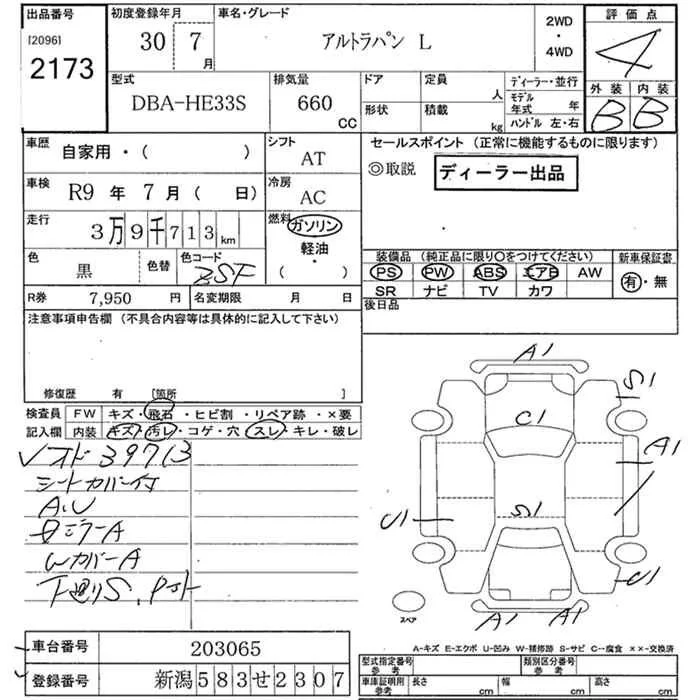 出品番号
[2096]
2173
初度登録年月
30 7
月
車名・グレード
アルトラパン L
2WD
・
4WD
評価点
4
外装 内装
B B
型式
DBA-HE33S
排気量
660
CC
ドア
定員
人
形状
積載
kg
ディーラー・並行
モデル
年式 年
ハンドル 左・右
車歴
自家用・( )
シフト
AT
セールスポイント (正常に機能するものに限ります)
◎取説
ディーラー出品
車検
R9 年 7 月 ( 日)
冷房
AC
走行
3万9千713 km
燃料
ガソリン
軽油・
( )
色
黒
色替
色コード
ZSF
装備品 (純正品に限り○をつけてください)
PS PW ABS エアB AW
SR ナビ TV カワ
新車保証書
有・無
R券 7,950 円
名変期限 月 日
後日品
注意事項申告欄 (不具合内容等は具体的に記入して下さい)
修復歴 有 [箇所 ]
検査員 FW キズ・飛石・ヒビ割・リペア跡・×要
記入欄 内装 キズ・汚レ・コゲ・穴・スレ・キレ・破レ
39713
シートカバー付
A.U
A
WカバーA
下廻りS.
A1
S1
C1
A1
S1
U1
U1
A1 A1
スペア
A-キズ E-エクボ U-凹み W-補修跡 S-サビ C-腐食 ××-交換済
車台番号 203065
登録番号 新潟583せ2307
型式指定番号
参考
類別区分番号
参考
車庫証明用
参考
長さ cm
幅 cm
高さ cm